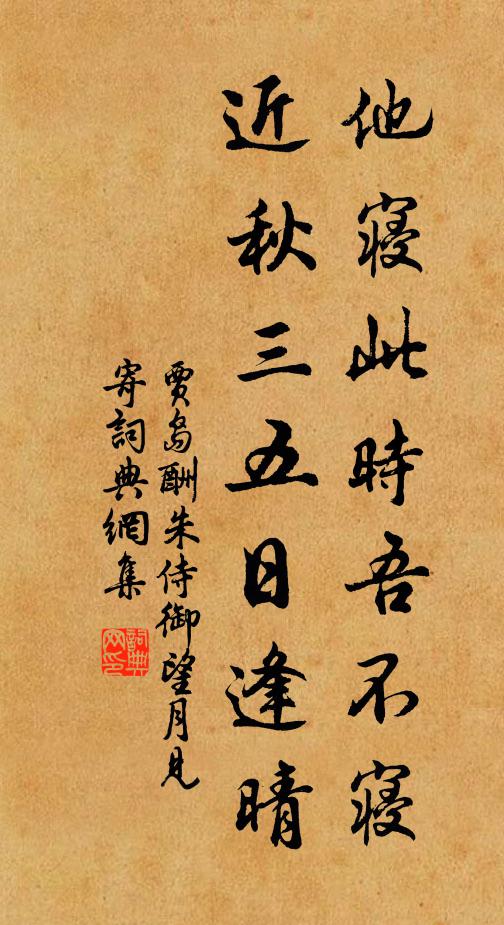 他寢此時吾不寢
近秋三五日逢晴
賈島酬朱侍御望月見
寄詞典網集
詞典
网印